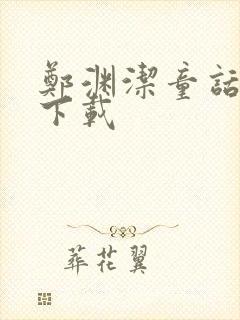 鄭渊潔童話
下載
葬花翼